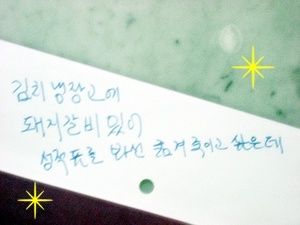 김치 냉장고에
돼지갈비 있어
성적표를 봐선 굶겨 죽이고 싶은데